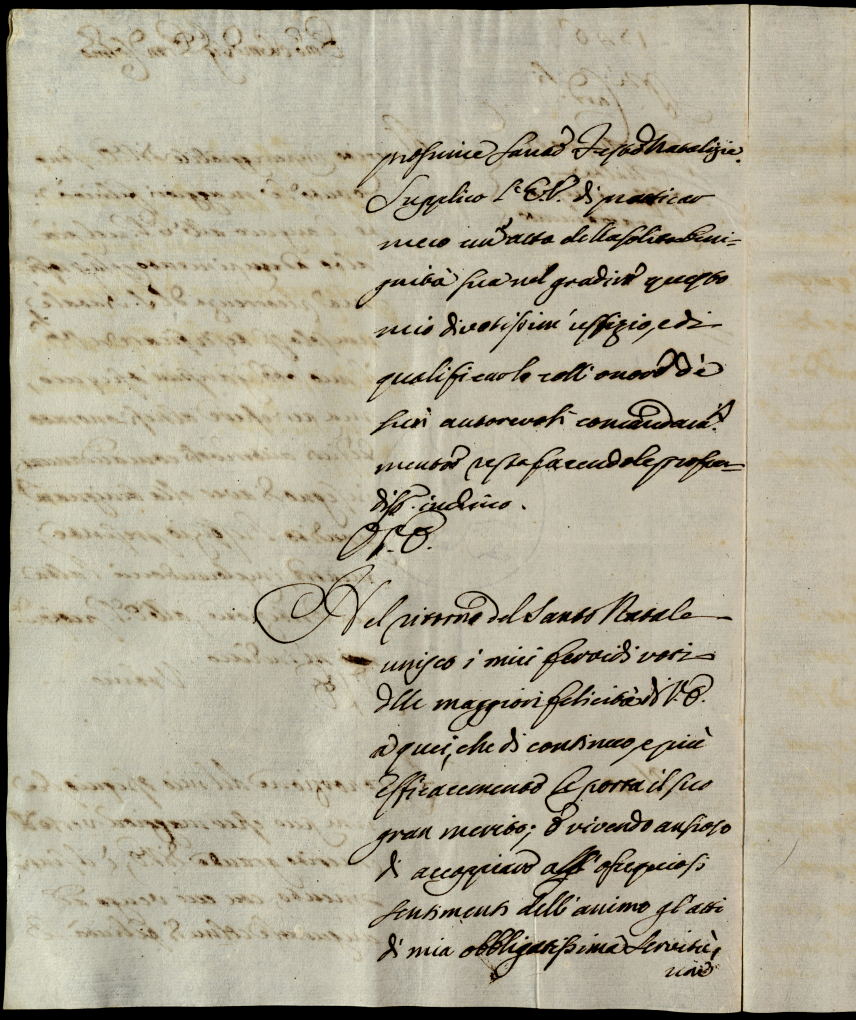 prossime Sante Feste Natalizie.
Supplico l'E.V. di praticar
meco un'atto della solita beni-
gnità sua nel gradire questo
mio divotissim' uffizio, e di
qualificarlo coll'onore de
suoi autorevoli comanda-
menti resta facendole profon-
diss. inchino.
Nel ritorno del Santo Natale
unisco i miei fervidi voti
delle maggiori felicità di V.E.
a quei, che di continuo, e più
efficacemente le porta il suo
gran merito; e vivendo ansioso
di accoppiare all'ossequiosi
sentimenti dell'animo gl'atti
di mia obbligatissima servitù,